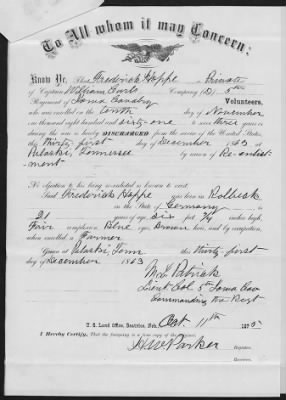 To All whom it may Concern:
Know Ye, That Frederick Hoppe a Private
of Captain William Curls Company (D) 5th
Regiment of Iowa Cavalry Volunteers,
who was enrolled on the tenth day of November
one thousand eight hundred and sixty-one to serve three years or
during the war is hereby DISCHARGED from the service of the United States,
this thirty first day of December 1863 at
Pulaski, Tennessee by reason of Re-enlist-
ment
No objection to his being re-enlisted is known to exist.
Said Frederick Hoppe was born in
in the State of Germany is
21 years of age, six feet high,
Fair complexion, Blue eyes, Brown hair, and by occupation,
when enrolled a Farmer
Given at Pulaski, Tenn this thirty first
day of December 1863
M. T. Patrick
Lieut Col. 5th Iowa Cav
Commanding the Regt
U. S. Land Office, Beatrice, Neb. Oct. 11th 187
I Hereby Certify, that the foregoing is a true copy of the original
H.W. Parker
Register.
Receiver.